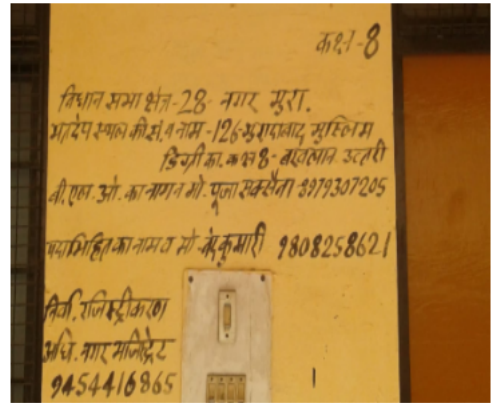 कक्ष-8
विधान सभा क्षेत्र-28- नगर मुरा.
मतदेय स्थल की सं. व नाम -126-मुरादाबाद मुस्लिम
डिग्री का. कक्ष 8- बरवलान उत्तरी
बी. एल. ओ. का नाम व मो. पूजा सक्सैना 8979307205
पदाभिहित का नाम व मो. चंद्रकुमारी 9808258621
निर्वा. रजिस्ट्रीकरण
अधि. नगर मजिस्ट्रेट
9454416865